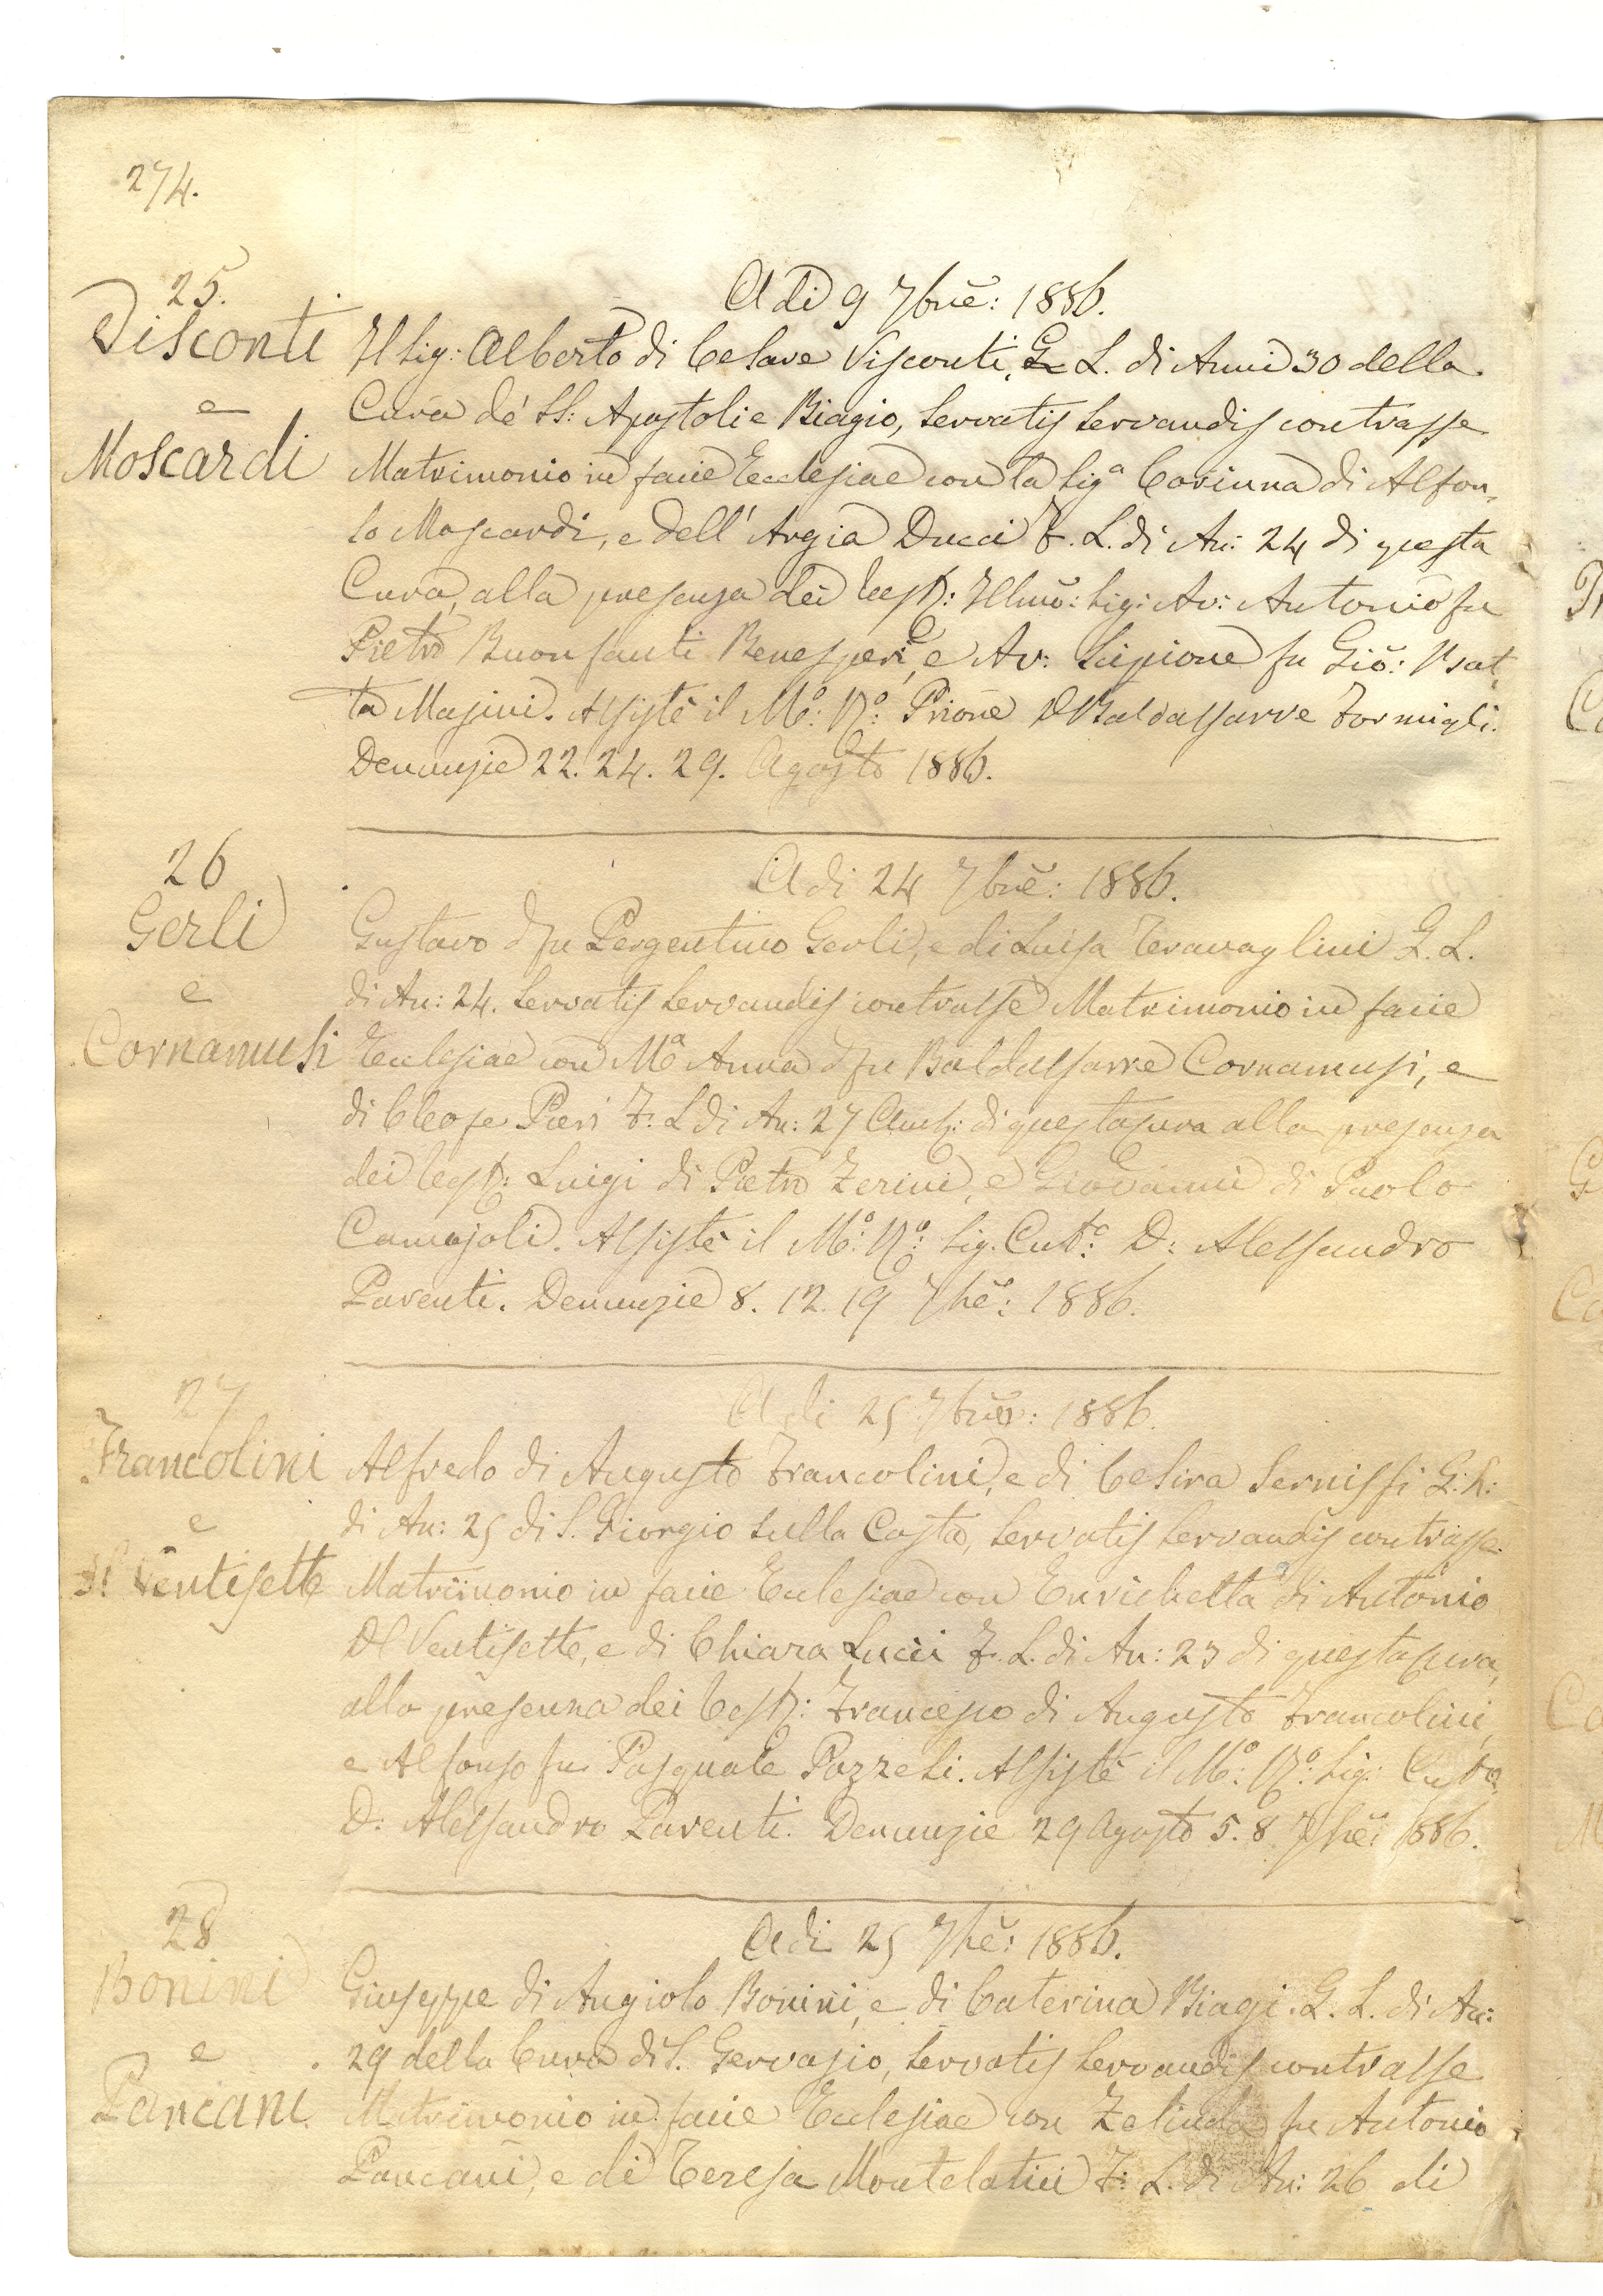 274.
25.
Visconti
e
Moscardi
A di 9 7bre: 1886.
Il Sig: Alberto di Cesare Visconti, G. L. di Anni 30 della
Cura de' SS: Apostoli e Biagio, servatis servandis contrasse
Matrimonio in facie Ecclesiae con la Sig.a Corinna di Alfon,
so Moscardi, e dell' Argia Ducci F. L. di An: 24 di questa
Cura, alla presenza dei Test: Illmo: Sig: Av: Antonio fu
Pietro Buonfanti Benesperi, e Av: Scipione fu Gio: Bat,
ta Masini. Assistè il M:o R:o Priore D Baldassarre Formigli.
Denunzie 22. 24. 29. Agosto 1886.
26
Gerli
e
Cornamusi
A di 24 7bre: 1886.
Gustavo d fu Pergentino Gerli, e di Luisa G. L.
di An: 24. servatis servandis contrasse Matrimonio in facie
Ecclesiae con M.a Anna d fu Baldassarre Cornamusi, e
di Cleofe Pieri F: L di An: 27 Amb: di questa Cura alla presenza
dei Test: Luigi di Pietro Zerini, e Giovanni di Paolo
Camajoli. Assistè il M:o R:o Sig. Cur:to D: Alessandro
Parenti. Denunzie 8. 12. 19 7bre: 1886.
27
Francolini
e
Del Ventisette
A di 25 7bre: 1886.
Alfredo di Augusto Francolini, e di Cesira Sernissi G: L:
di An: 25 di S. Giorgio sulla Costa, servatis servandis contrasse
Matrimonio in facie Ecclesiae con Enrichetta di Antonio
Del Ventisette, e di Chiara Lucii F. L. di An: 23 di questa Cura,
alla presenza dei Test: Francesco di Augusto Francolini,
e Alfonso fu Pasquale Pozzesi. Assistè il M:o R:o Sig: Cur:to
D: Alessandro Parenti. Denunzie 29 Agosto 5. 8 7bre: 1886.
28
Bonini
e
Pancani
A di 25 7bre: 1886.
Giuseppe di Angiolo Bonini, e di Caterina Biagi. G. L. di An:
29 della Cura di S. Gervasio, servatis servandis contrasse
Matrimonio in facie Ecclesiae con Zelinda fu Antonio
Pancani, e di Teresa Montelatici F: L. di An: 26 di